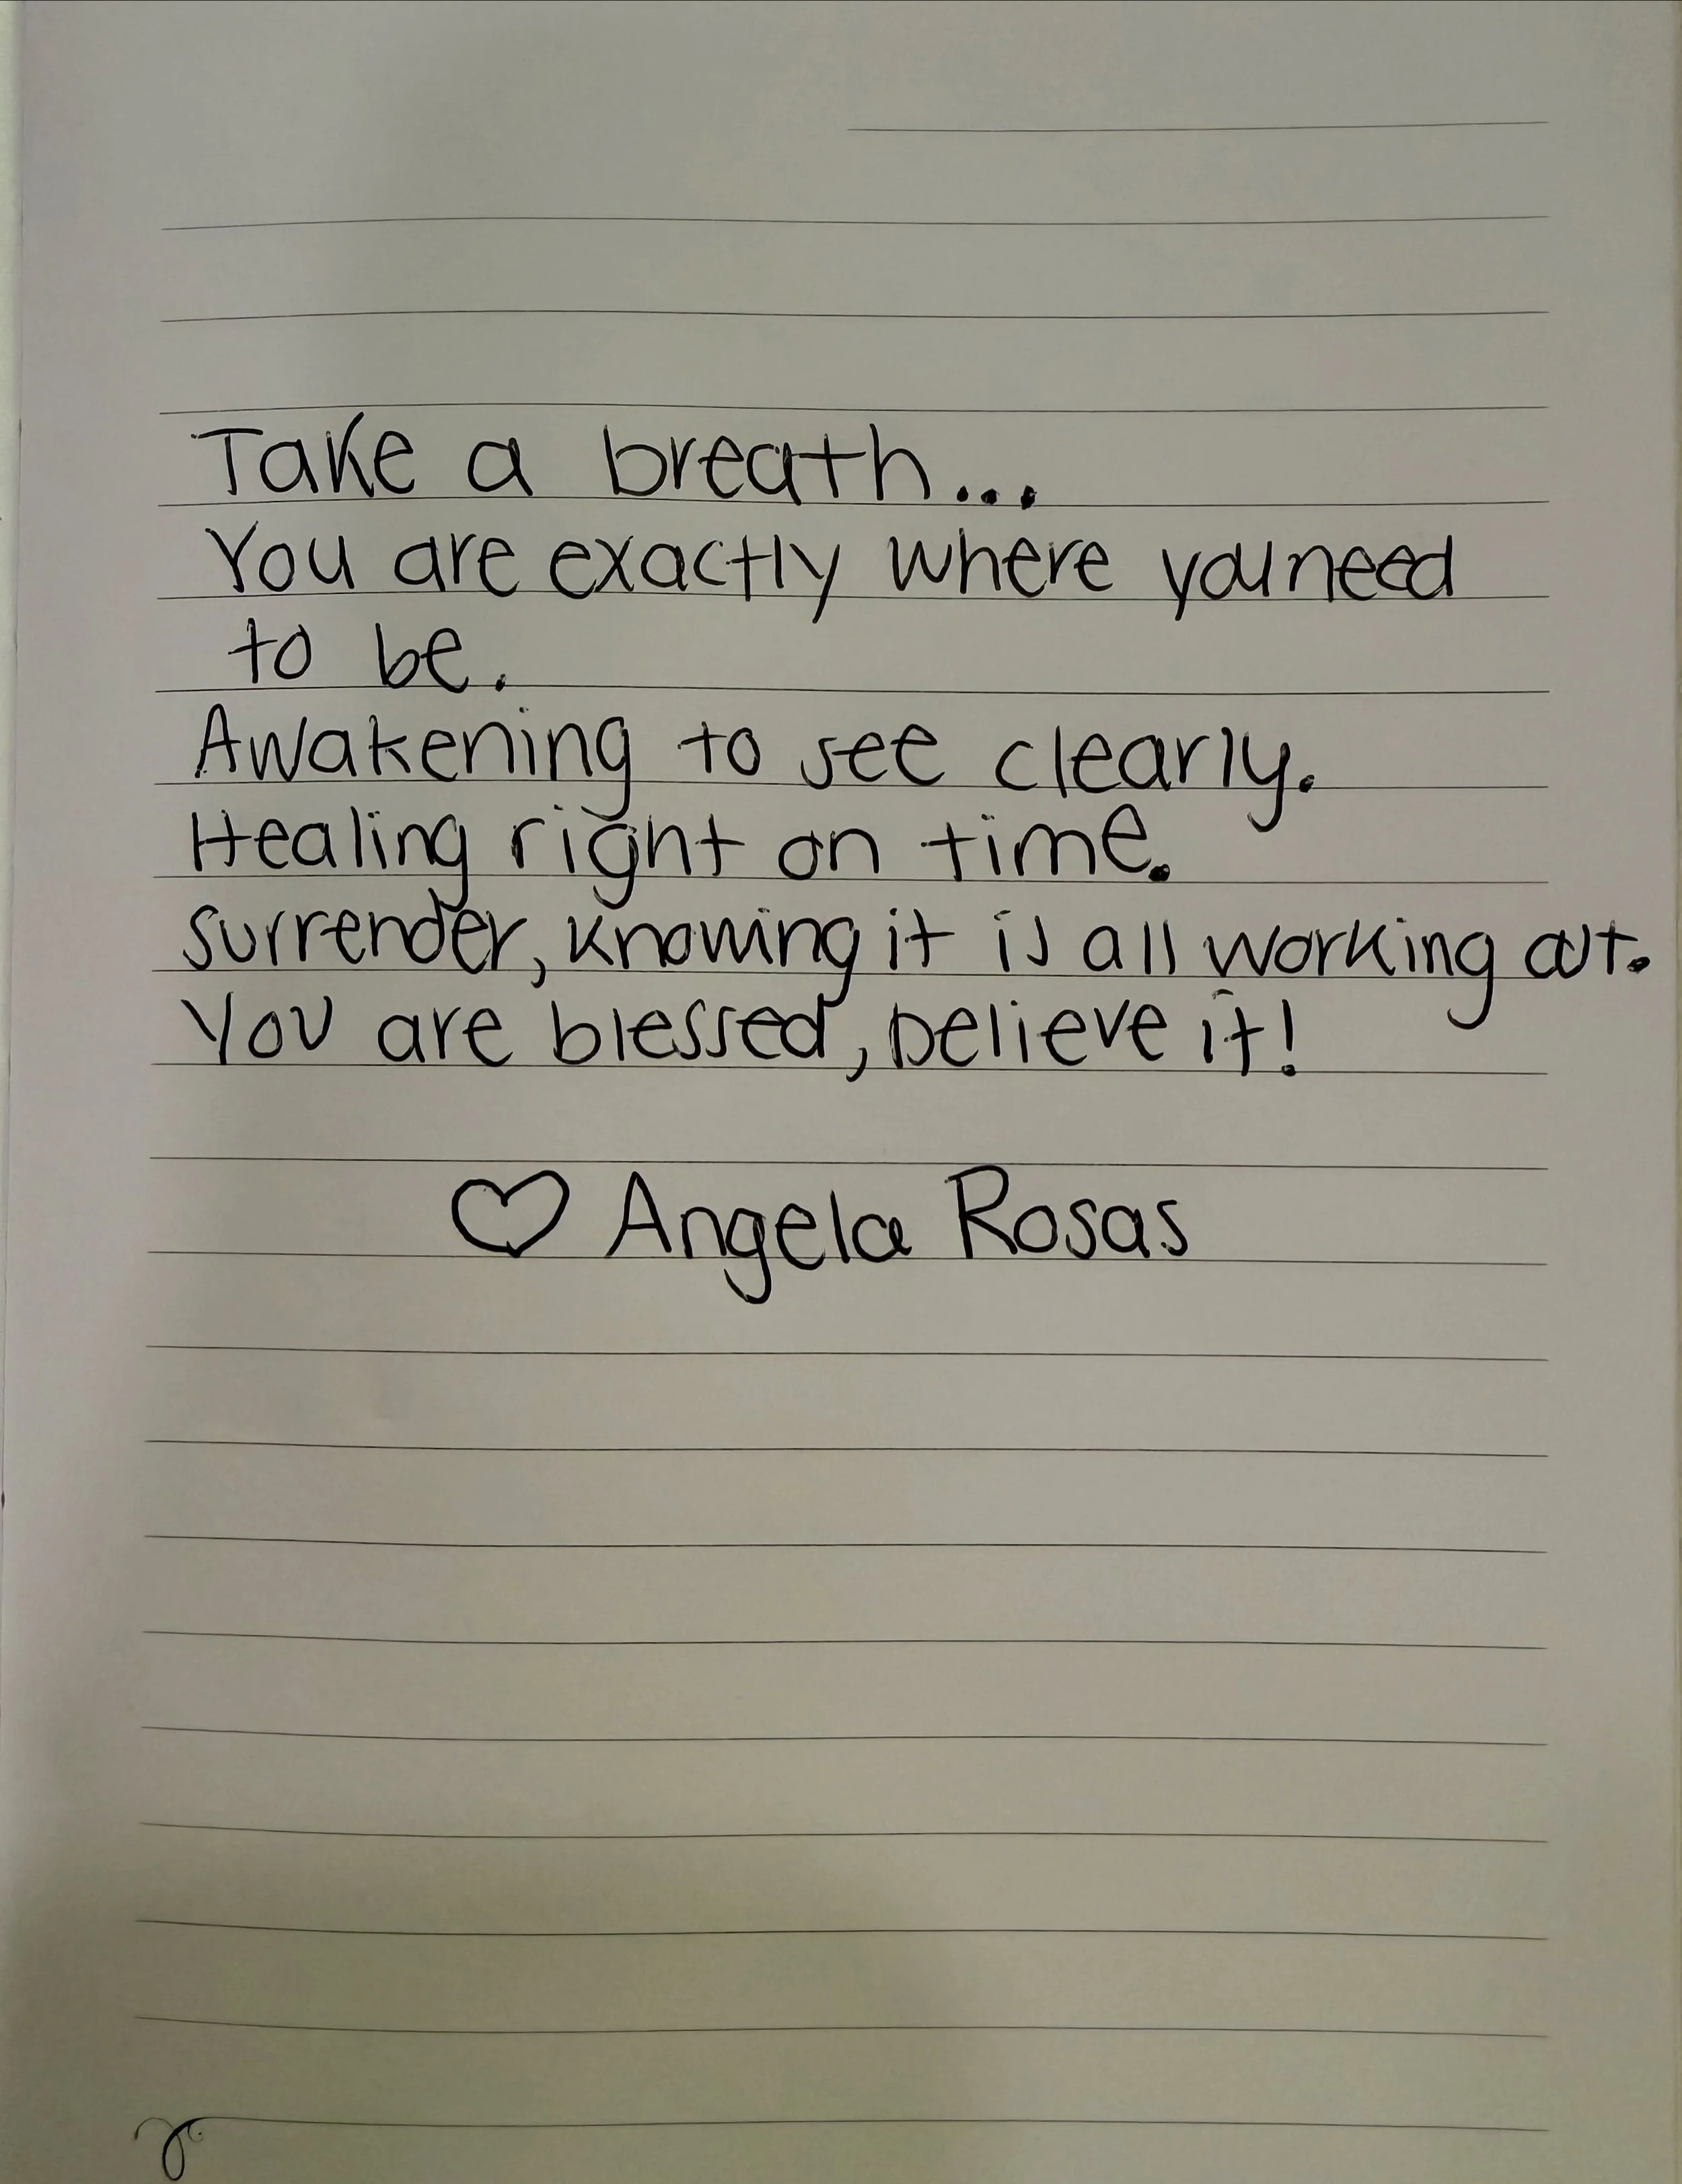 Take a breath...
You are exactly where you need
to be.
Awakening to see clearly.
Healing right on time.
Surrender, knowing it is all working out.
You are blessed, believe it!
♡ Angela Rosas